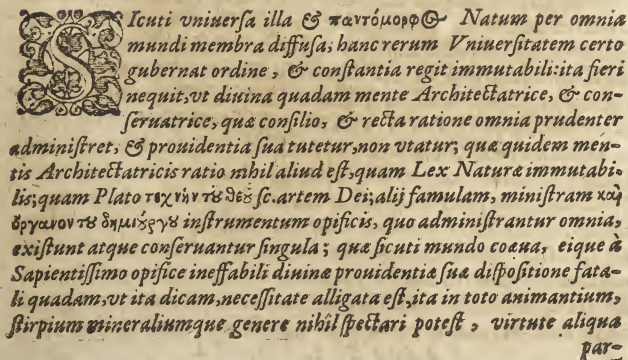 SIcuti vniuerſa illa & παντόμορφΘ Natum per omnia
mundi membra diffuſa, hanc rerum Vniuerſitatem certo
gubernat ordine, & conſtantia regit immutabili: ita fieri
nequit, vt diuina quadam mente Architectatrice, & con-
ſeruatrice, quæ conſilio, & recta ratione omnia prudenter
adminiſtret, & prouidentia ſua tutetur, non vtatur; quæ quidem men-
tis Architectatricis ratio nihil aliud eſt, quam Lex Naturæ immutabi-
lis; quam Plato τεχνὴν τȣ̃ θεȣ̃ ſc. artem Dei; alij famulam, miniſtram καὶ
ὄργανον τȣ̃ δημιȣργȣ̃ inſtrumentum opificis, quo adminiſtrantur omnia,
exiſtunt atque conſeruantur ſingula; quæ ſicuti mundo coæua, eique à
Sapientiſſimo opifice ineffabili diuinæ prouidentiæ ſuæ diſpoſitione fata-
li quadam, vt ita dicam, neceſſitate alligata eſt, ita in toto animantium,
ſtirpium mineraliumque genere nihil ſpectari poteſt, virtute aliqua
par-